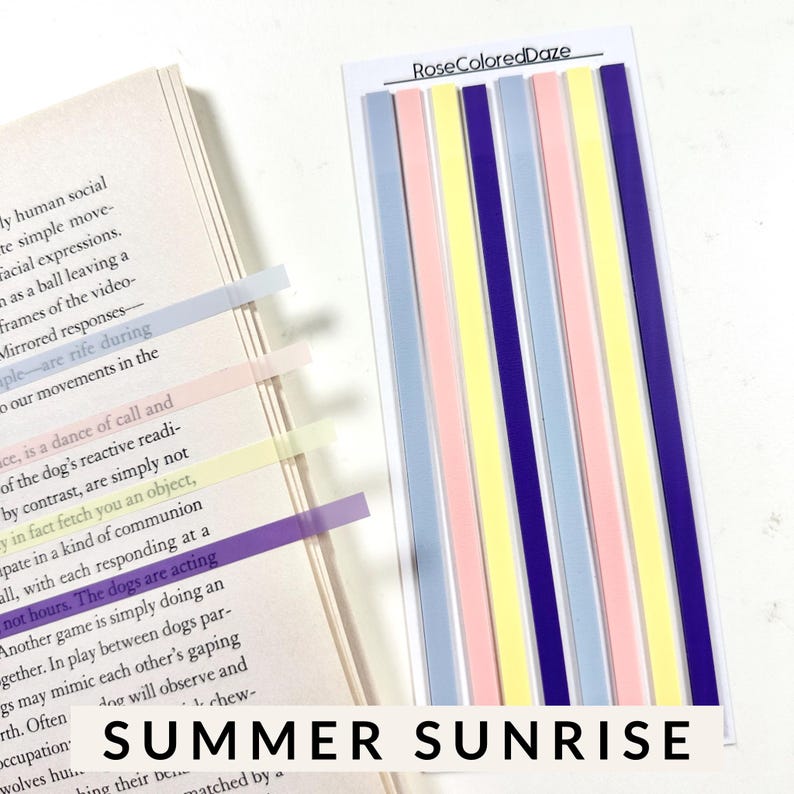 RoseColoredDaze
ly human social
te simple move-
facial expressions.
n as a ball leaving a
frames of the video-
Mirrored responses—
ple—are rife during
o our movements in the
ce, is a dance of call and
of the dog's reactive readi-
by contrast, are simply not
y in fact fetch you an object,
pate in a kind of communion
all, with each responding at a
not hours. The dogs are acting
Another game is simply doing an
gether. In play between dogs par-
gs may mimic each other's gaping
rth. Often dog will observe and
occupation
wolves hun
matched by a
SUMMER SUNRISE